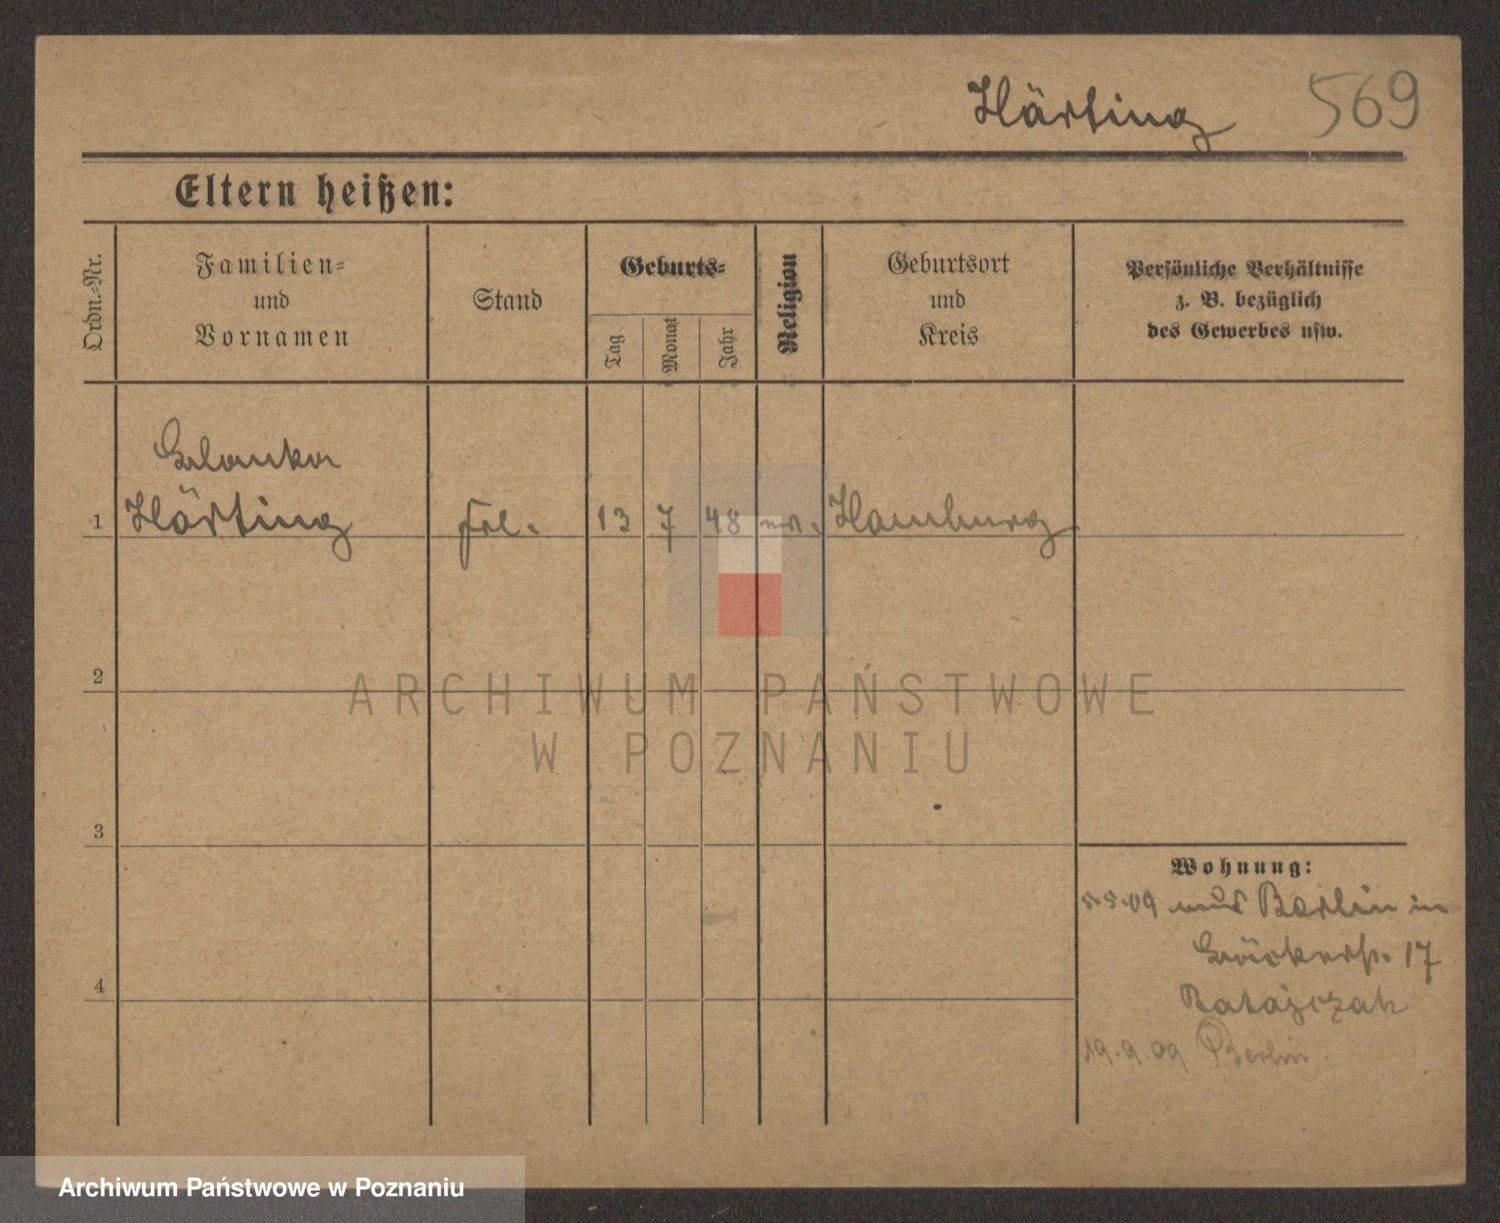 Härting 569
Eltern heißen:
Ordn.=Nr.
Familien=
und
Vornamen
Stand
Geburts=
Tag
Monat
Jahr
Religion
Geburtsort
und
Kreis
Persönliche Verhältnisse
z. B. bezüglich
des Gewerbes usw.
Blanka
1 Härting Frl. 13 7 48 ev. Hamburg
2
ARCHIWUM PAŃSTWOWE
W POZNANIU
3
Wohnung:
5.5.09 aus Berlin in
Bäckerstr. 17
4
Ratajczak
19.9.09 Berlin.
Archiwum Państwowe w Poznaniu